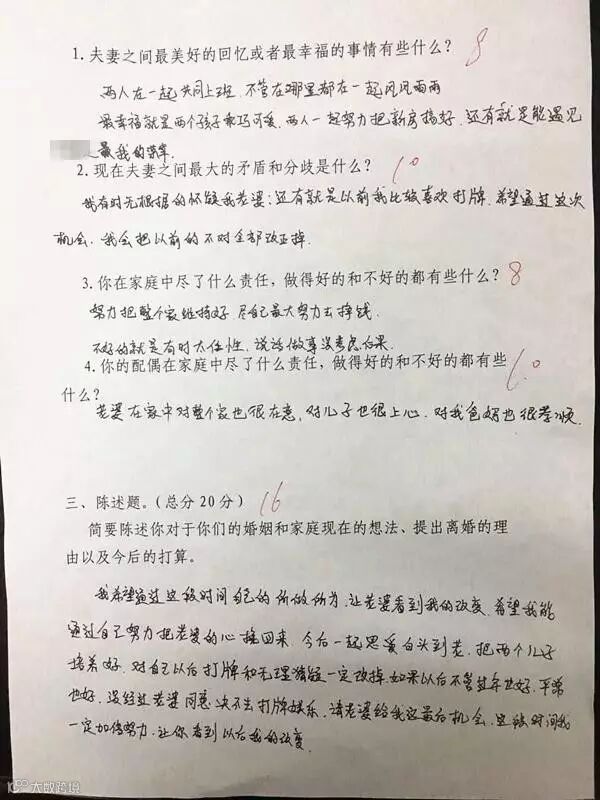 1.夫妻之间最美好的回忆或者最幸福的事情有些什么？ 8
两人在一起共同上班，不管在哪里都在一起风风雨雨
最幸福就是两个孩子乖巧可爱，两人一起努力把新房搞好，还有就是能遇见
是最我的
2.现在夫妻之间最大的矛盾和分歧是什么？ 10
我有时无根据的怀疑我老婆；还有就是以前我比较喜欢打牌，希望通过这次
机会，我会把以前的不对全部改正掉。
3.你在家庭中尽了什么责任，做得好的和不好的都有些什么？ 8
努力把整个家维持好，尽自己最大努力去挣钱。
不好的就是有时太任性，说话做事没考虑后果。
4.你的配偶在家庭中尽了什么责任，做得好的和不好的都有些 10
什么？
老婆在家中对整个家也很在意，对儿子也很上心，对我爸妈也很孝顺。
三、陈述题。（总分20分） 16
简要陈述你对于你们的婚姻和家庭现在的想法、提出离婚的理
由以及今后的打算。
我希望通过这段时间自己的所做所为，让老婆看到我的改变，希望我能
通过自己努力把老婆的心挽回来，今后一起恩爱白头到老，把两个儿子
培养好，对自己以后打牌和无理猜疑一定改掉，如果以后不管过年也好，平常
也好，没经过老婆同意决不去打牌娱乐，请老婆给我这最后机会，这段时间我
一定加倍努力，让你看到以后我的改变。
大数跨境